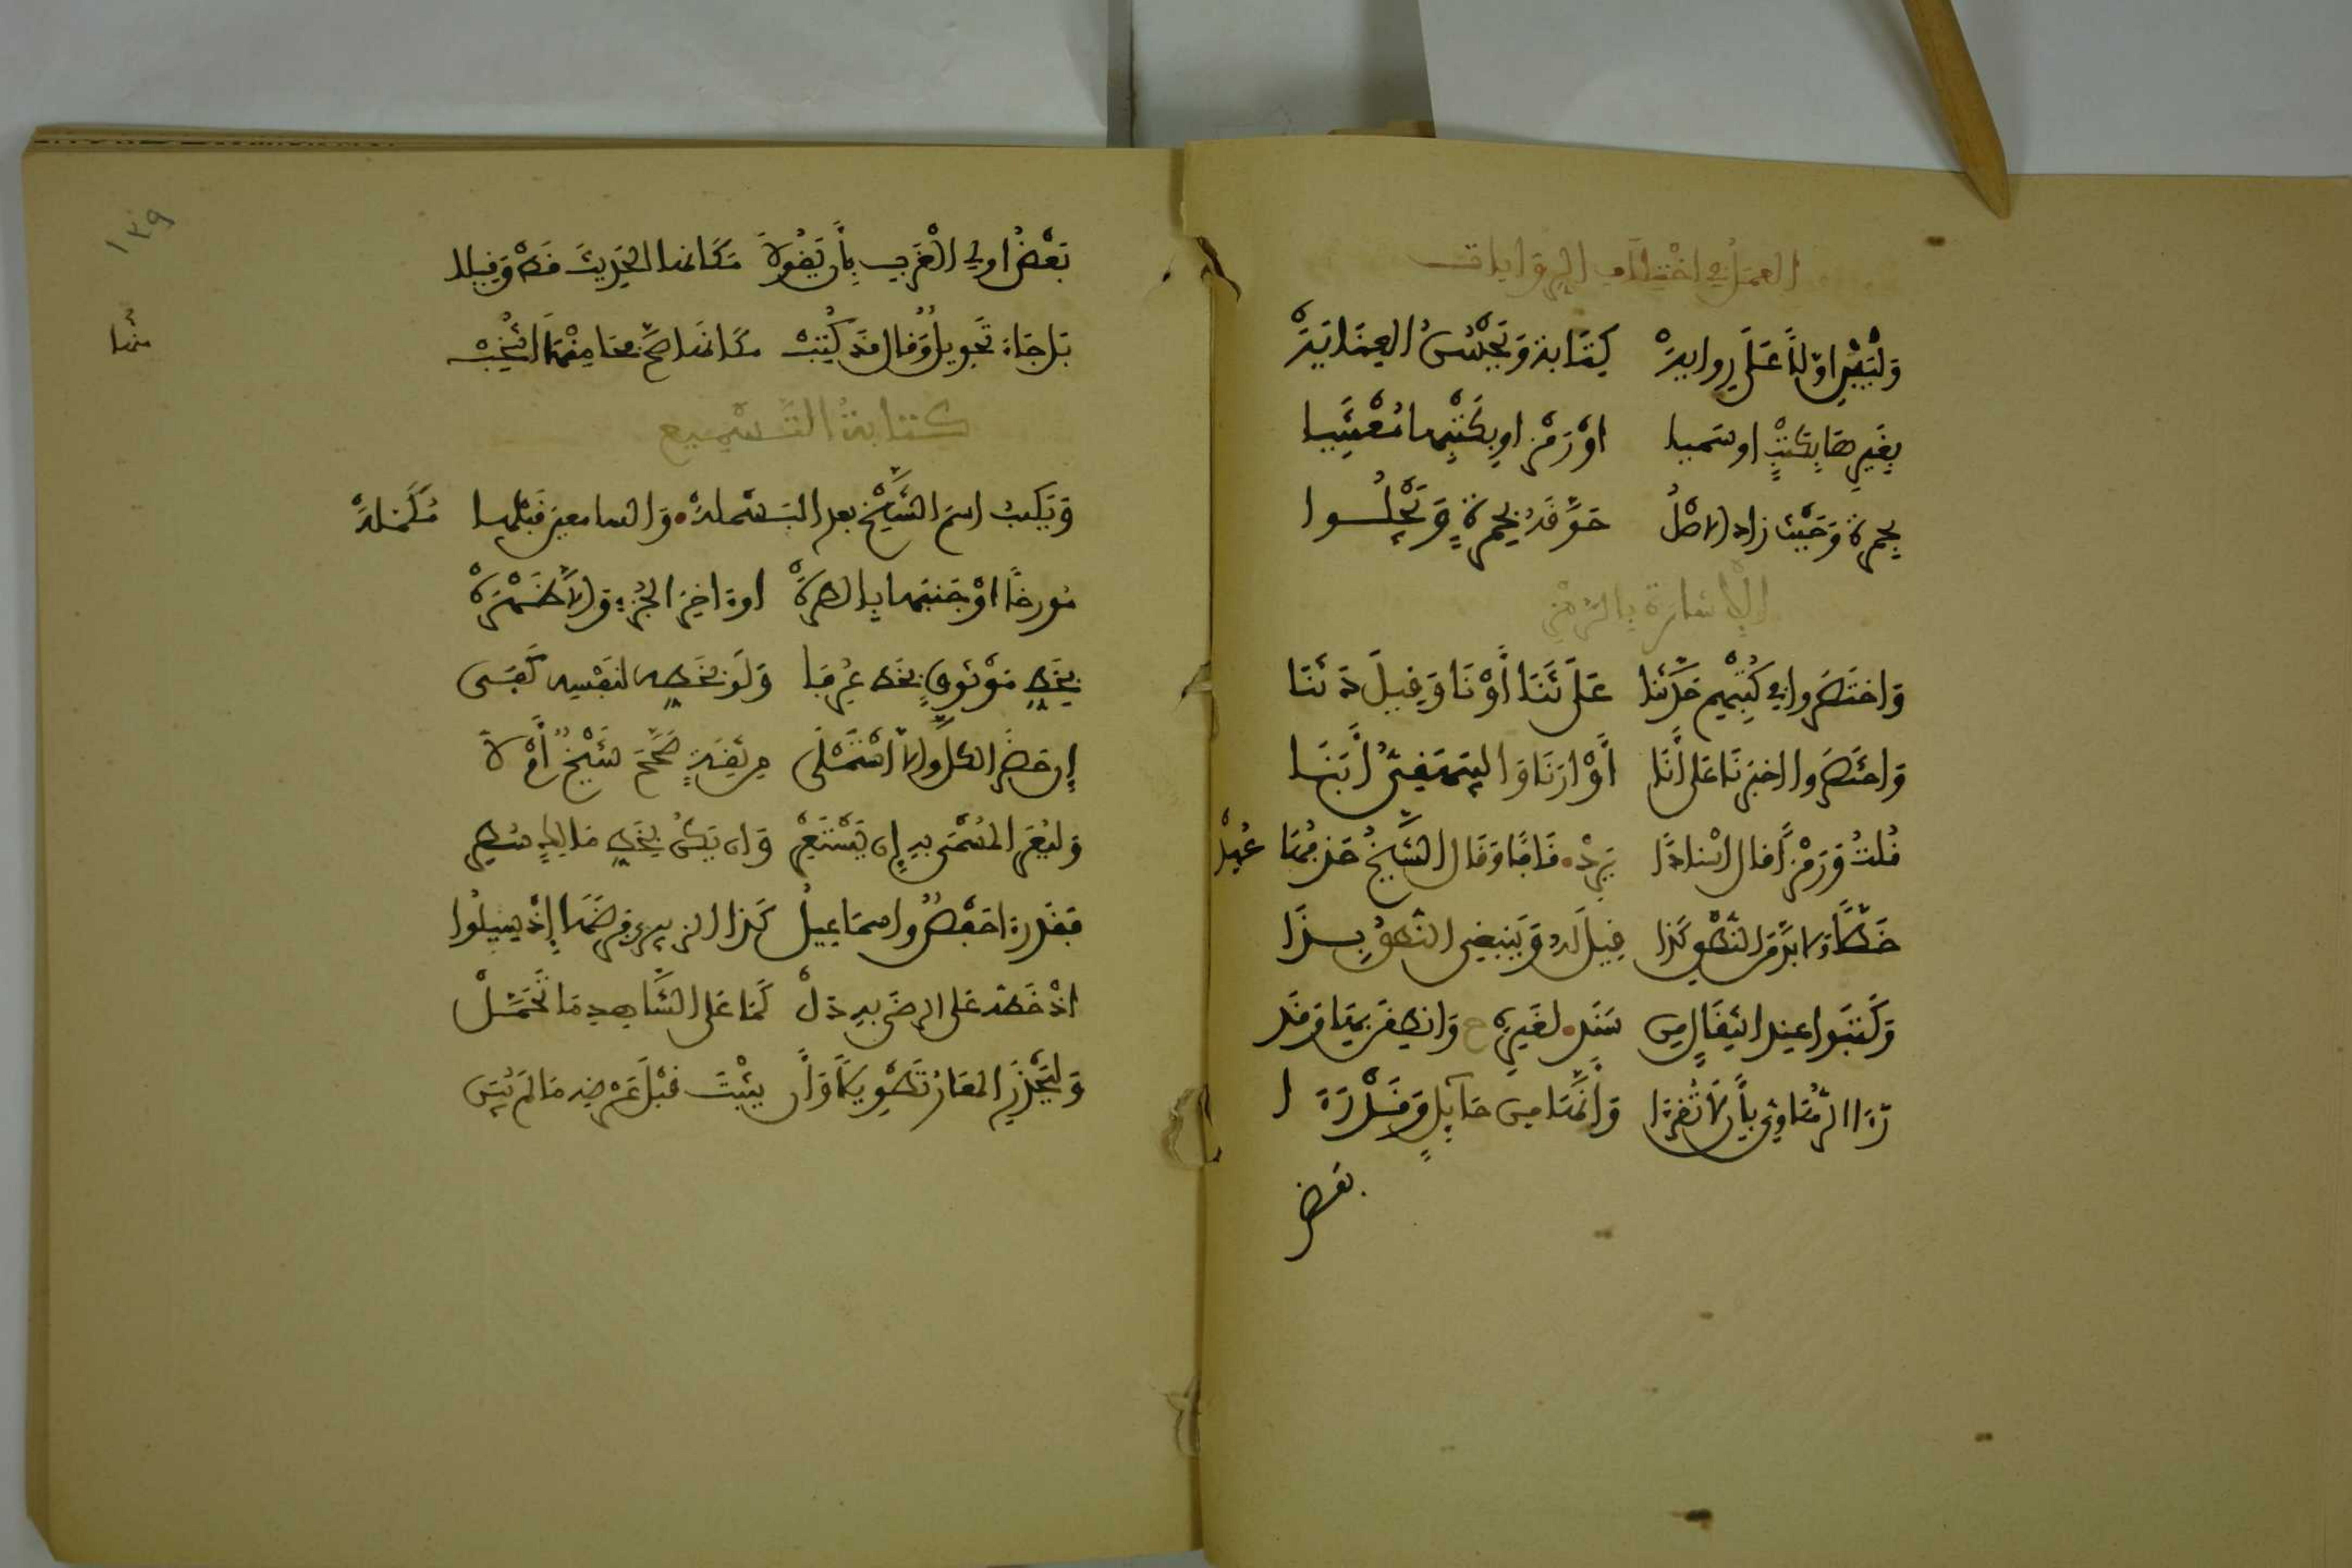 العمل في اختلاف الروايات
وَلْيَبْنِ اوّلاً عَلَى رِوايهْ كِتَابة وَيَحْسُنُ العِنَايَهْ
بِغَيرِهَا بِكَتْبٍ اوسميا اوْ رَمْزٍ او بِكَتْبِها مُعْتَنِيا
بحمرة وَحَيْثُ زاد الاصْلُ حَوَّقَهُ بحمرةٍ وَيَجْلُــوا
الإشارة بالرّمز
وَاختَصَروا في كُتْبِهم حَدَّثنا عَلَى ثَنَا أوْ نَا وَقِيلَ دَثَنَا
وَاختَصَروا اخبرنَا عَلى أنَا أوْ ارَنَا وَالبيهقيُّ أبَنَا
قُلتُ وَرَمْزُ قال اسْنادًا يَرِدْ قَافًا وَقَال الشَّيخُ حَذفُهَا عُهِدْ
خَطًّا وَلابُدَّ مِن النُّطْقِ كَذا قِيلَ لَهُ وَيَنبَغي النُّطقُ بِــذَا
وَكَتَبوا عِند انتِقَالٍ مِن سَنَد لغَيرِهِ ح وَانطِقَنْ بهَا وَقَد
رَءَا الرُّهَاوِيُّ بأن لَا تُقرَا وَأنَّهَا مِن حَآئِلٍ وَقَدْ رَءَا
بعض
١٣٩
بَعْضُ اولي الْغَربِ بِأن يَقُولاَ مَكَانها الحَدِيثَ قَطْ وَقِيلا
بَل حَاءُ تَحْوِيلٍ وَقَال قد كُتِبْ مَكَانَهَا صَحَّ فحَا مِنْهَا انْتُخِبْ
كتابة التَّسْمِيع
وَيَكتبُ اسمَ الشَّيْخِ بعد البَسْملهْ وَالسامعينَ قَبْلها مُكَمَّلهْ
مُورخًا اوْ جَنبَها بالطرّهْ اوءاخِرَ الجُزءِ وَالاَّ ظَهْرَهْ
بِخَطِّ مَوْثُوقٍ بِخَطٍّ عُرِفَا وَلَو بخَطِّه لنَفْسِه كَفَى
إن حَضَرَ الكلَّ وإلاَّ اسْتَمْلَى مِن ثِقَةٍ صَحَّحَ شَيْخٌ أمْ لاَ
وَليُعِرِ المُسْمَى بهِ إن يَسْتَعِرْ وَان يَكُنْ بِخَطِّ مَالِكٍ سُطِر
فَقَد رءا حَفْصٌ واسماعِيلُ كَذا الزبيري فَرضَهَا إذْ سِيلُوا
اذْ خَطّه عَلى الرضَى بهِ دَلْ كَمَا عَلى الشَّاهِدِ مَا تَحَمَّلْ
وَليَحْذَرِ المعَارُ تَطْوِيلًا وَأن يثبِتَ قَبْلَ عَرْضِه مَا لَمْ يُبَن